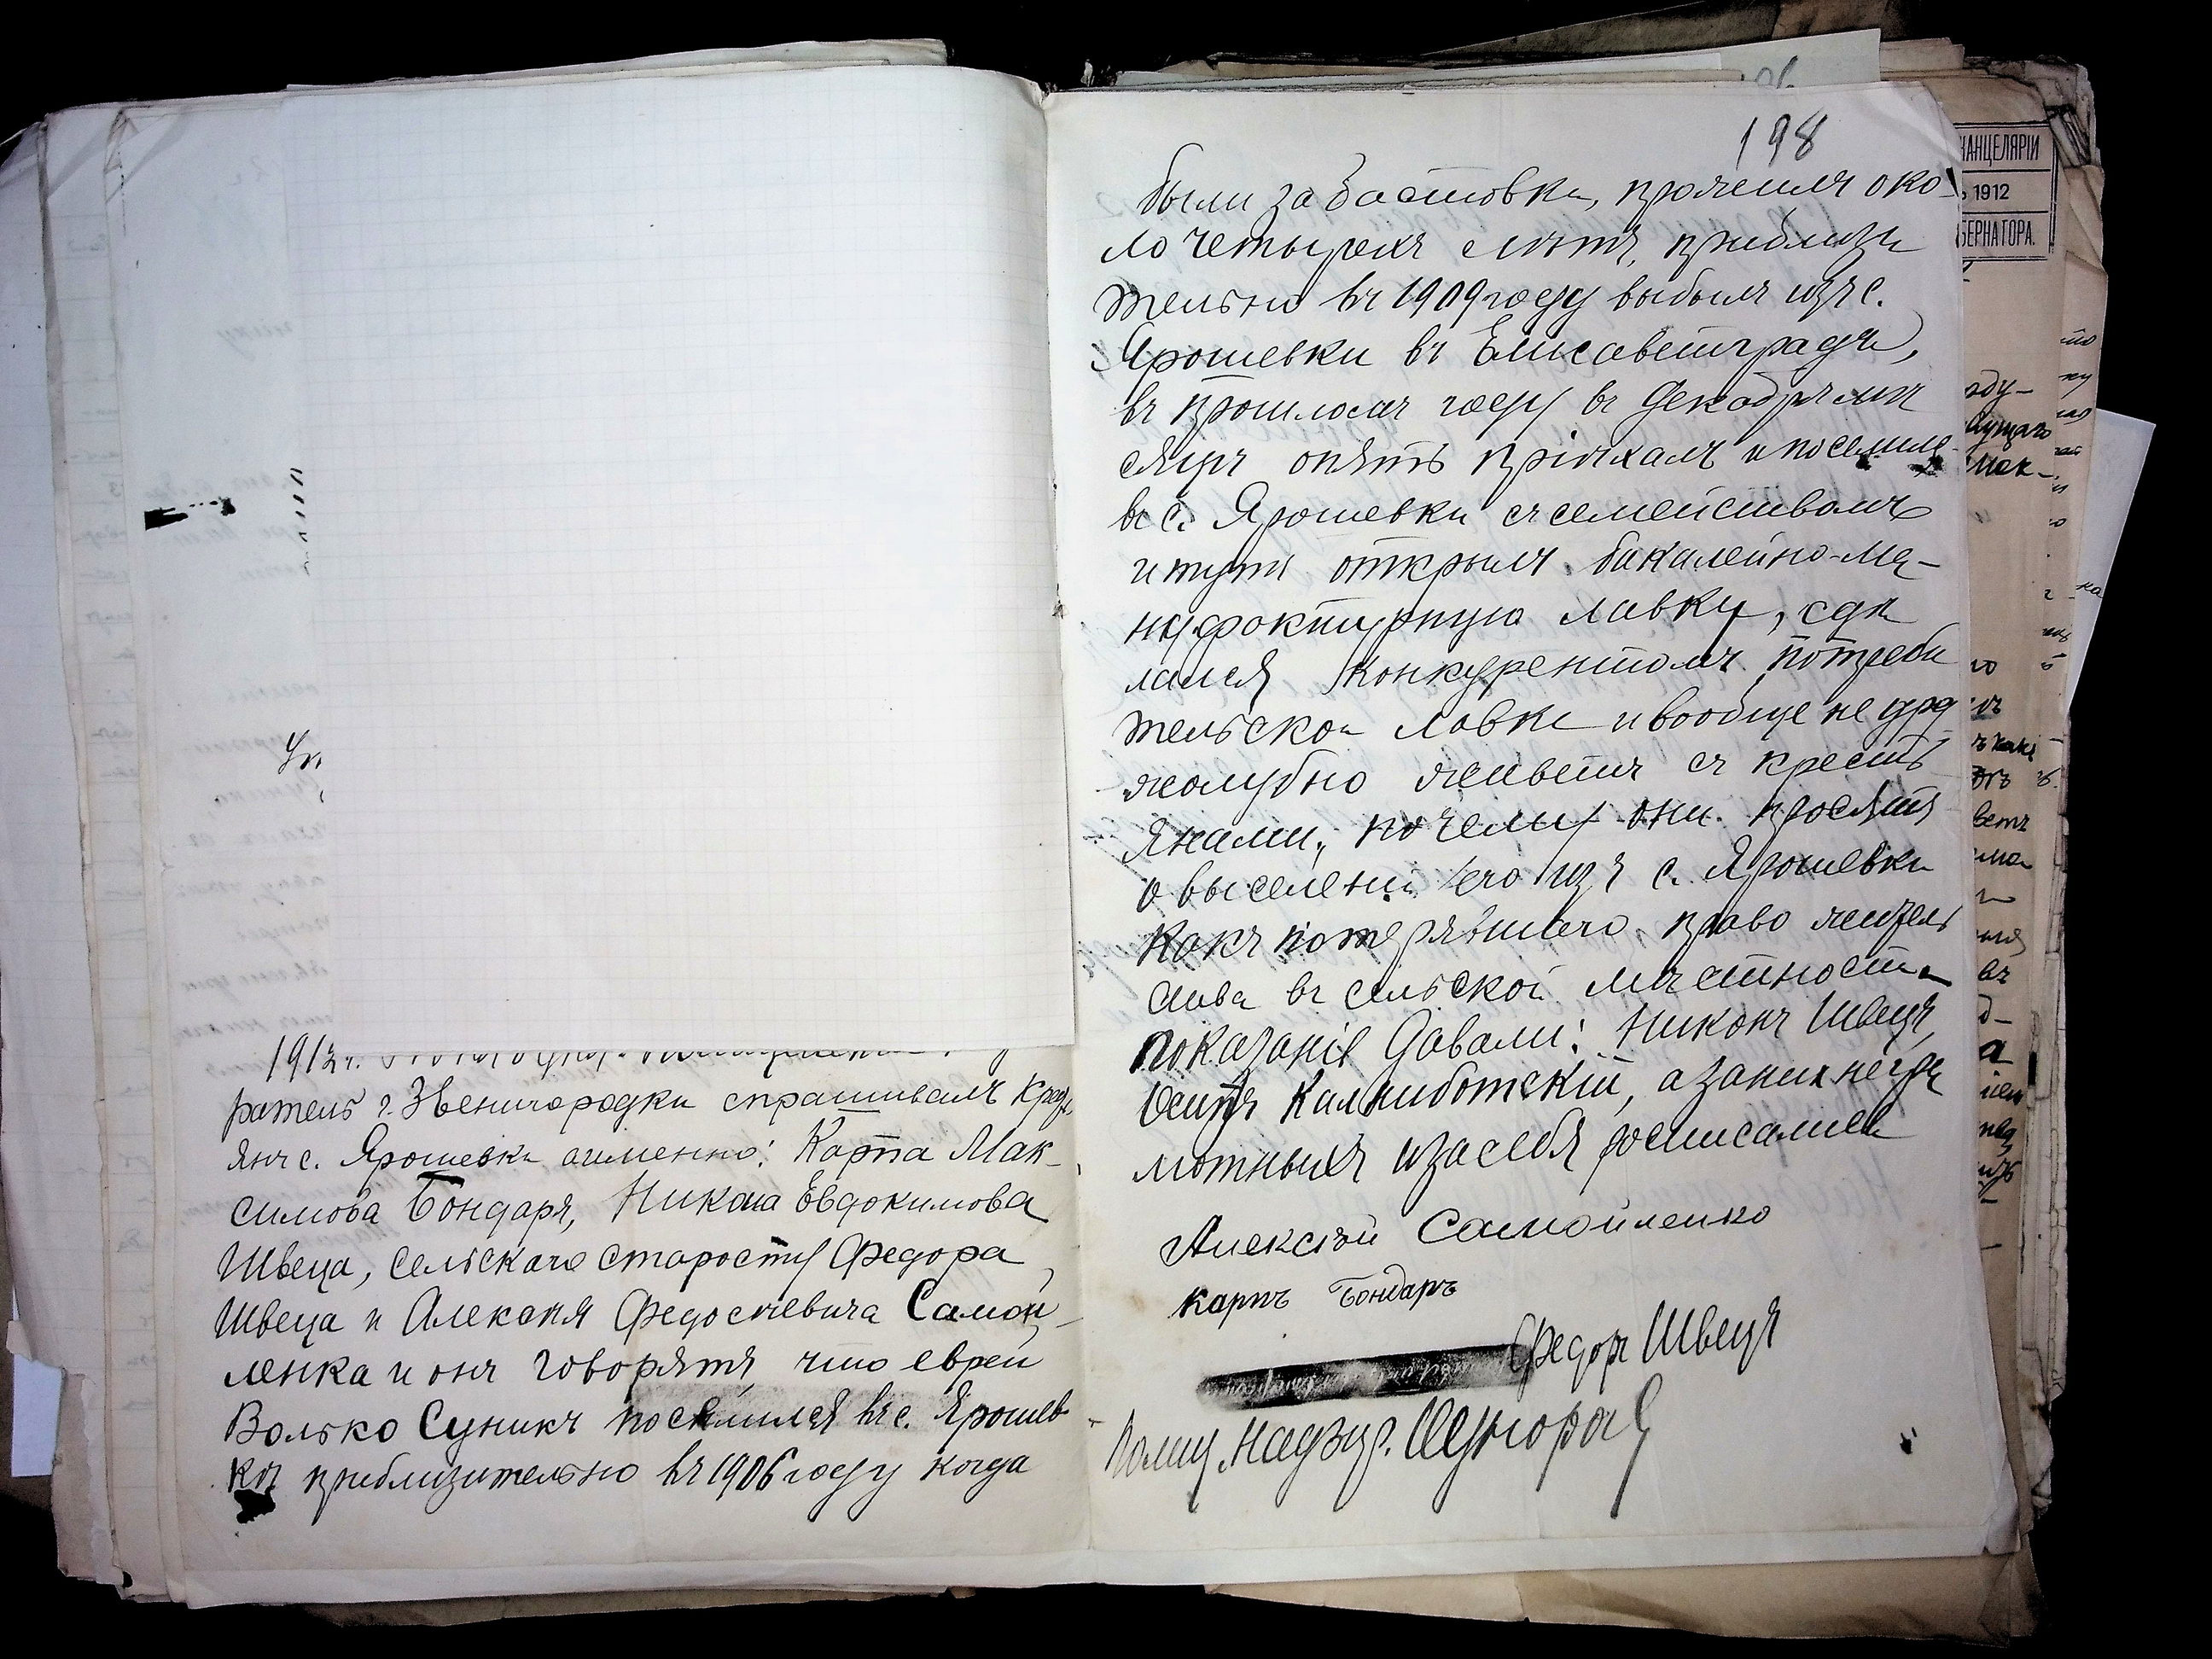 1912 г.
ратель г. Звенигородки спрашивалъ крес
янъ с. Ярошевки аименно: Карпа Мак-
симова Бондаря, Никона Евдокимова
Швеца, Сельскаго старосту Федора
Швеца и Алексѣя Федосѣевича Самой
ленка и онѣ говорятъ, что еврей
Волько Суникъ поселился въ с. Ярошев
кѣ приблизительно въ 1906 году когда
198
были забастовки, прожилъ око-
ло четырехъ лѣтъ, приблизи
тельно въ 1909 году выбылъ изъ с.
Ярошевки въ Елисаветградъ,
въ прошломъ году въ Декабрѣ мѣ
сяцѣ опять пріѣхалъ и поселился
въ с. Ярошевки съ семействомъ
и тутъ открылъ бакалейно-ма-
нуфактурную лавку, сдѣ
лался конкурентомъ потреби
тельской лавке и вообще не дру
жолубно живетъ съ кресть
янами, почему они просятъ
о выселеніи его изъ с. Ярошевки
какъ потерявшаго право житель
ства въ сельской мѣстности
показанія давали: Никонъ Швецъ,
Осипъ Калниботскій, а за них негра
мотныхъ и за себя росписались
Алексѣй Самойленко
карпъ Бондаръ
Федоръ Швецъ
Полиц. Надзир.
КАНЦЕЛЯРІИ
1912
БЕРНАТОРА.